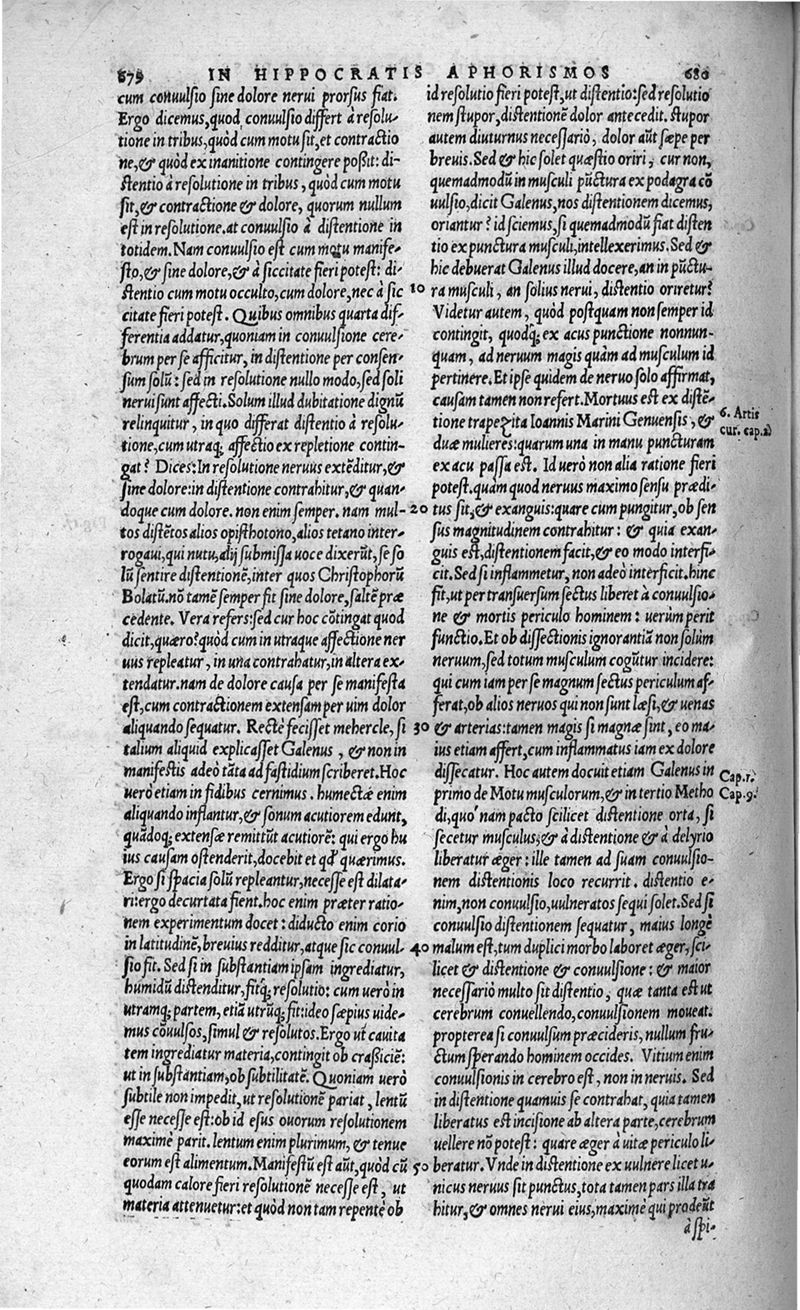 679 IN HIPPOCRATIS APHORISMOS 680
cum conuulsio sine dolore nerui prorsus fiat.
Ergo dicemus, quod conuulsio differt à resolu-
tione in tribus, quòd cum motu sit, et contractio
ne, & quòd ex inanitione contingere poßit: di-
stentio à resolutione in tribus, quòd cum motu
sit, & contractione & dolore, quorum nullum
est in resolutione. at conuulsio à distentione in
totidem. Nam conuulsio est cum motu manife-
sto, & sine dolore, & à siccitate fieri potest: di-
stentio cum motu occulto, cum dolore, nec à sic
citate fieri potest. Quibus omnibus quarta dif-
ferentia addatur, quoniam in conuulsione cere-
brum per se afficitur, in distentione per consen-
sum solũ: sed in resolutione nullo modo, sed soli
nerui sunt affecti. Solum illud dubitatione dignũ
relinquitur, in quo differat distentio à resolu-
tione, cum utraq; affectio ex repletione contin-
gat? Dices: In resolutione neruus extẽditur, &
sine dolore: in distentione contrahitur, & quan-
doque cum dolore. non enim semper. nam mul-
tos distẽtos alios opisthotono, alios tetano inter-
rogaui, qui nutu, alij submissa uoce dixerũt, se so
lũ sentire distentionẽ, inter quos Christophorũ
Bolatũ. nõ tamẽ semper fit sine dolore, saltẽ præ
cedente. Vera refers: sed cur hoc cõtingat quod
dicit, quæro? quòd cum in utraque affectione ner
uus repleatur, in una contrahatur, in altera ex-
tendatur. nam de dolore causa per se manifesta
est, cum contractionem extensam per uim dolor
aliquando sequatur. Rectè fecisset mehercle, si
talium aliquid explicasset Galenus, & non in
manifestis adeò tãta ad fastidium scriberet. Hoc
uerò etiam in fidibus cernimus. humectæ enim
aliquando inflantur, & sonum acutiorem edunt,
quãdoq; extensæ remittũt acutiorẽ: qui ergo hu
ius causam ostenderit, docebit et qđ quærimus.
Ergo si spacia solũ repleantur, necesse est dilata-
ri: ergo decurtata fient. hoc enim præter ratio-
nem experimentum docet: diducto enim corio
in latitudinẽ, breuius redditur, atque sic conuul-
sio fit. Sed si in substantiam ipsam ingrediatur,
humidũ distenditur, fitq; resolutio: cum uerò in
utramq; partem, etiã utrũq; fit: ideo sæpius uide-
mus cõuulsos, simul & resolutos. Ergo ut cauita
tem ingrediatur materia, contingit ob craßiciẽ:
ut in substantiam, ob subtilitatẽ. Quoniam uerò
subtile non impedit, ut resolutionẽ pariat, lentũ
esse necesse est: ob id esus ouorum resolutionem
maximè parit. lentum enim plurimum, & tenue
eorum est alimentum. Manifestũ est aũt, quòd cũ
quodam calore fieri resolutionẽ necesse est, ut
materia attenuetur: et quòd non tam repentè ob
id resolutio fieri potest, ut distentio: sed resolutio
nem stupor, distentionẽ dolor antecedit. stupor
autem diuturnus necessariò, dolor aũt sæpe per
breuis. Sed & hic solet quæstio oriri, cur non,
quemadmodũ in musculi pũctura ex podagra cõ
uulsio, dicit Galenus, nos distentionem dicemus,
oriantur? id sciemus, si quemadmodũ fiat disten
tio ex punctura musculi, intellexerimus. Sed &
hic debuerat Galenus illud docere, an in pũctu-
10 ra musculi, an solius nerui, distentio oriretur?
Videtur autem, quòd postquam non semper id
contingit, quodq; ex acus punctione nonnun-
quam, ad neruum magis quàm ad musculum id
pertinere. Et ipse quidem de neruo solo affirmat,
causam tamen non refert. Mortuus est ex distẽ-
tione trapezita Ioannis Marini Genuensis, &
duæ mulieres: quarum una in manu puncturam
ex acu passa est. Id uerò non alia ratione fieri
potest. quàm quod neruus maximo sensu prædi-
20 tus sit, & exanguis: quare cum pungitur, ob sen
sus magnitudinem contrahitur: & quia exan-
guis est, distentionem facit, & eo modo interfi-
cit. Sed si inflammetur, non adeò interficit. hinc
fit, ut per transuersum sectus liberet à conuulsio-
ne & mortis periculo hominem: uerùm perit
functio. Et ob dissectionis ignorantiã non solùm
neruum, sed totum musculum cogũtur incidere:
qui cum iam per se magnum sectus periculum af-
ferat, ob alios neruos qui non sunt læsi, & uenas
30 & arterias: tamen magis si magnæ sint, eo ma-
ius etiam affert, cum inflammatus iam ex dolore
dissecatur. Hoc autem docuit etiam Galenus in
primo de Motu musculorum, & in tertio Metho
di, quo' nam pacto scilicet distentione orta, si
secetur musculus, & à distentione & à delyrio
liberatur æger: ille tamen ad suam conuulsio-
nem distentionis loco recurrit. distentio e-
nim, non conuulsio, uulneratos sequi solet. Sed si
conuulsio distentionem sequatur, maius longè
40 malum est, tum duplici morbo laboret æger, sci-
licet & distentione & conuulsione: & maior
necessariò multo sit distentio, quæ tanta est ut
cerebrum conuellendo, conuulsionem moueat.
propterea si conuulsum præcideris, nullum fru-
ctum sperando hominem occides. Vitium enim
conuulsionis in cerebro est, non in neruis. Sed
in distentione quamuis se contrahat, quia tamen
liberatus est incisione ab altera parte, cerebrum
uellere nõ potest: quare æger à uitæ periculo li-
50 beratur. Vnde in distentione ex uulnere licet u-
nicus neruus sit punctus, tota tamen pars illa tra
hitur, & omnes nerui eius, maximè qui prodeũt
à spi-
6. Artis
cur. cap. 2
Cap. 1.
Cap. 9.